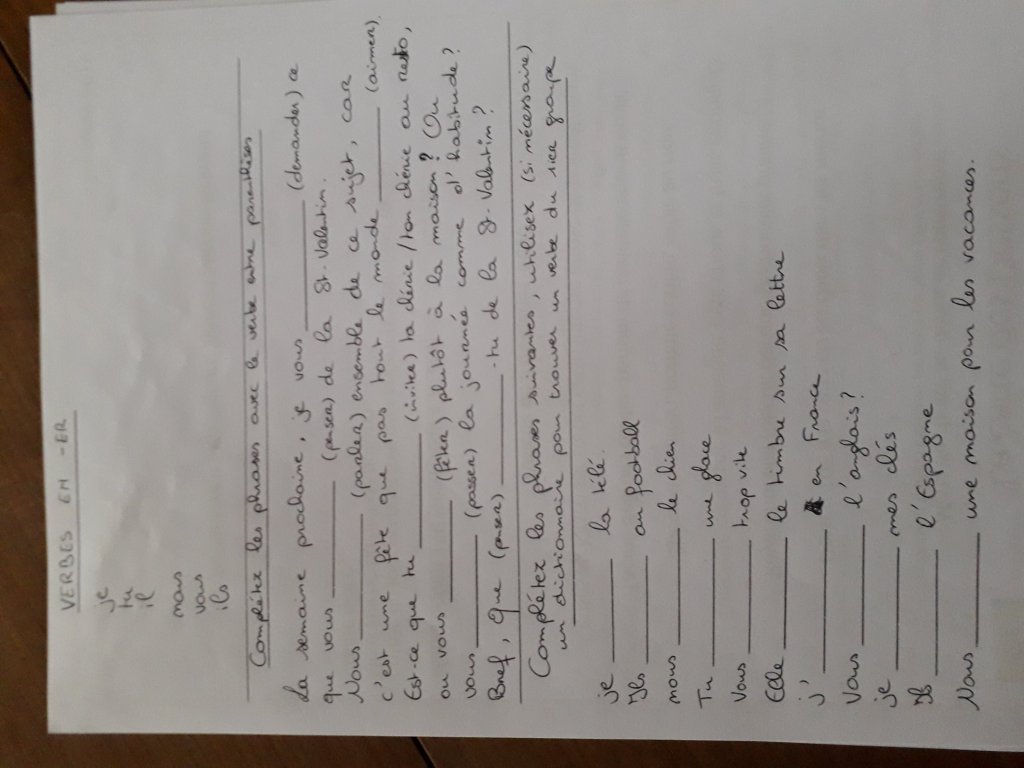 VERBES EN -ER
je
tu
il
nous
vous
ils
Complétez les phrases avec le verbe entre parenthèses
La semaine prochaine, je vous ________ (demander) ce
que vous ________ (penser) de la St-Valentin.
Nous ________ (parler) ensemble de ce sujet, car
c'est une fête que pas tout le monde ________ (aimer).
Est-ce que tu ________ (inviter) ta chérie/ton chérie au resto,
ou vous ________ (fêter) plutôt à la maison? Ou
vous ________ (passer) la journée comme d'habitude?
Bref, que (penser) ________ -tu de la St-Valentin?
Complétez les phrases suivantes, utilisez (si nécessaire)
un dictionnaire pour trouver un verbe du 1ier groupe
je ________ la télé.
Ils ________ au football
nous ________ le chien
Tu ________ une glace
Vous ________ trop vite
Elle ________ le timbre sur sa lettre
j' ________ en France
Vous ________ l'anglais?
je ________ mes clés
Ils ________ l'Espagne
Nous ________ une maison pour les vacances.